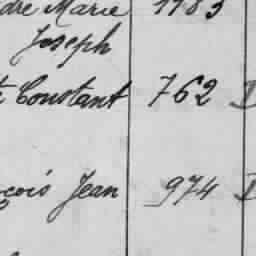 dré Marie 1783
Joseph
Constant 762
çois Jean 974